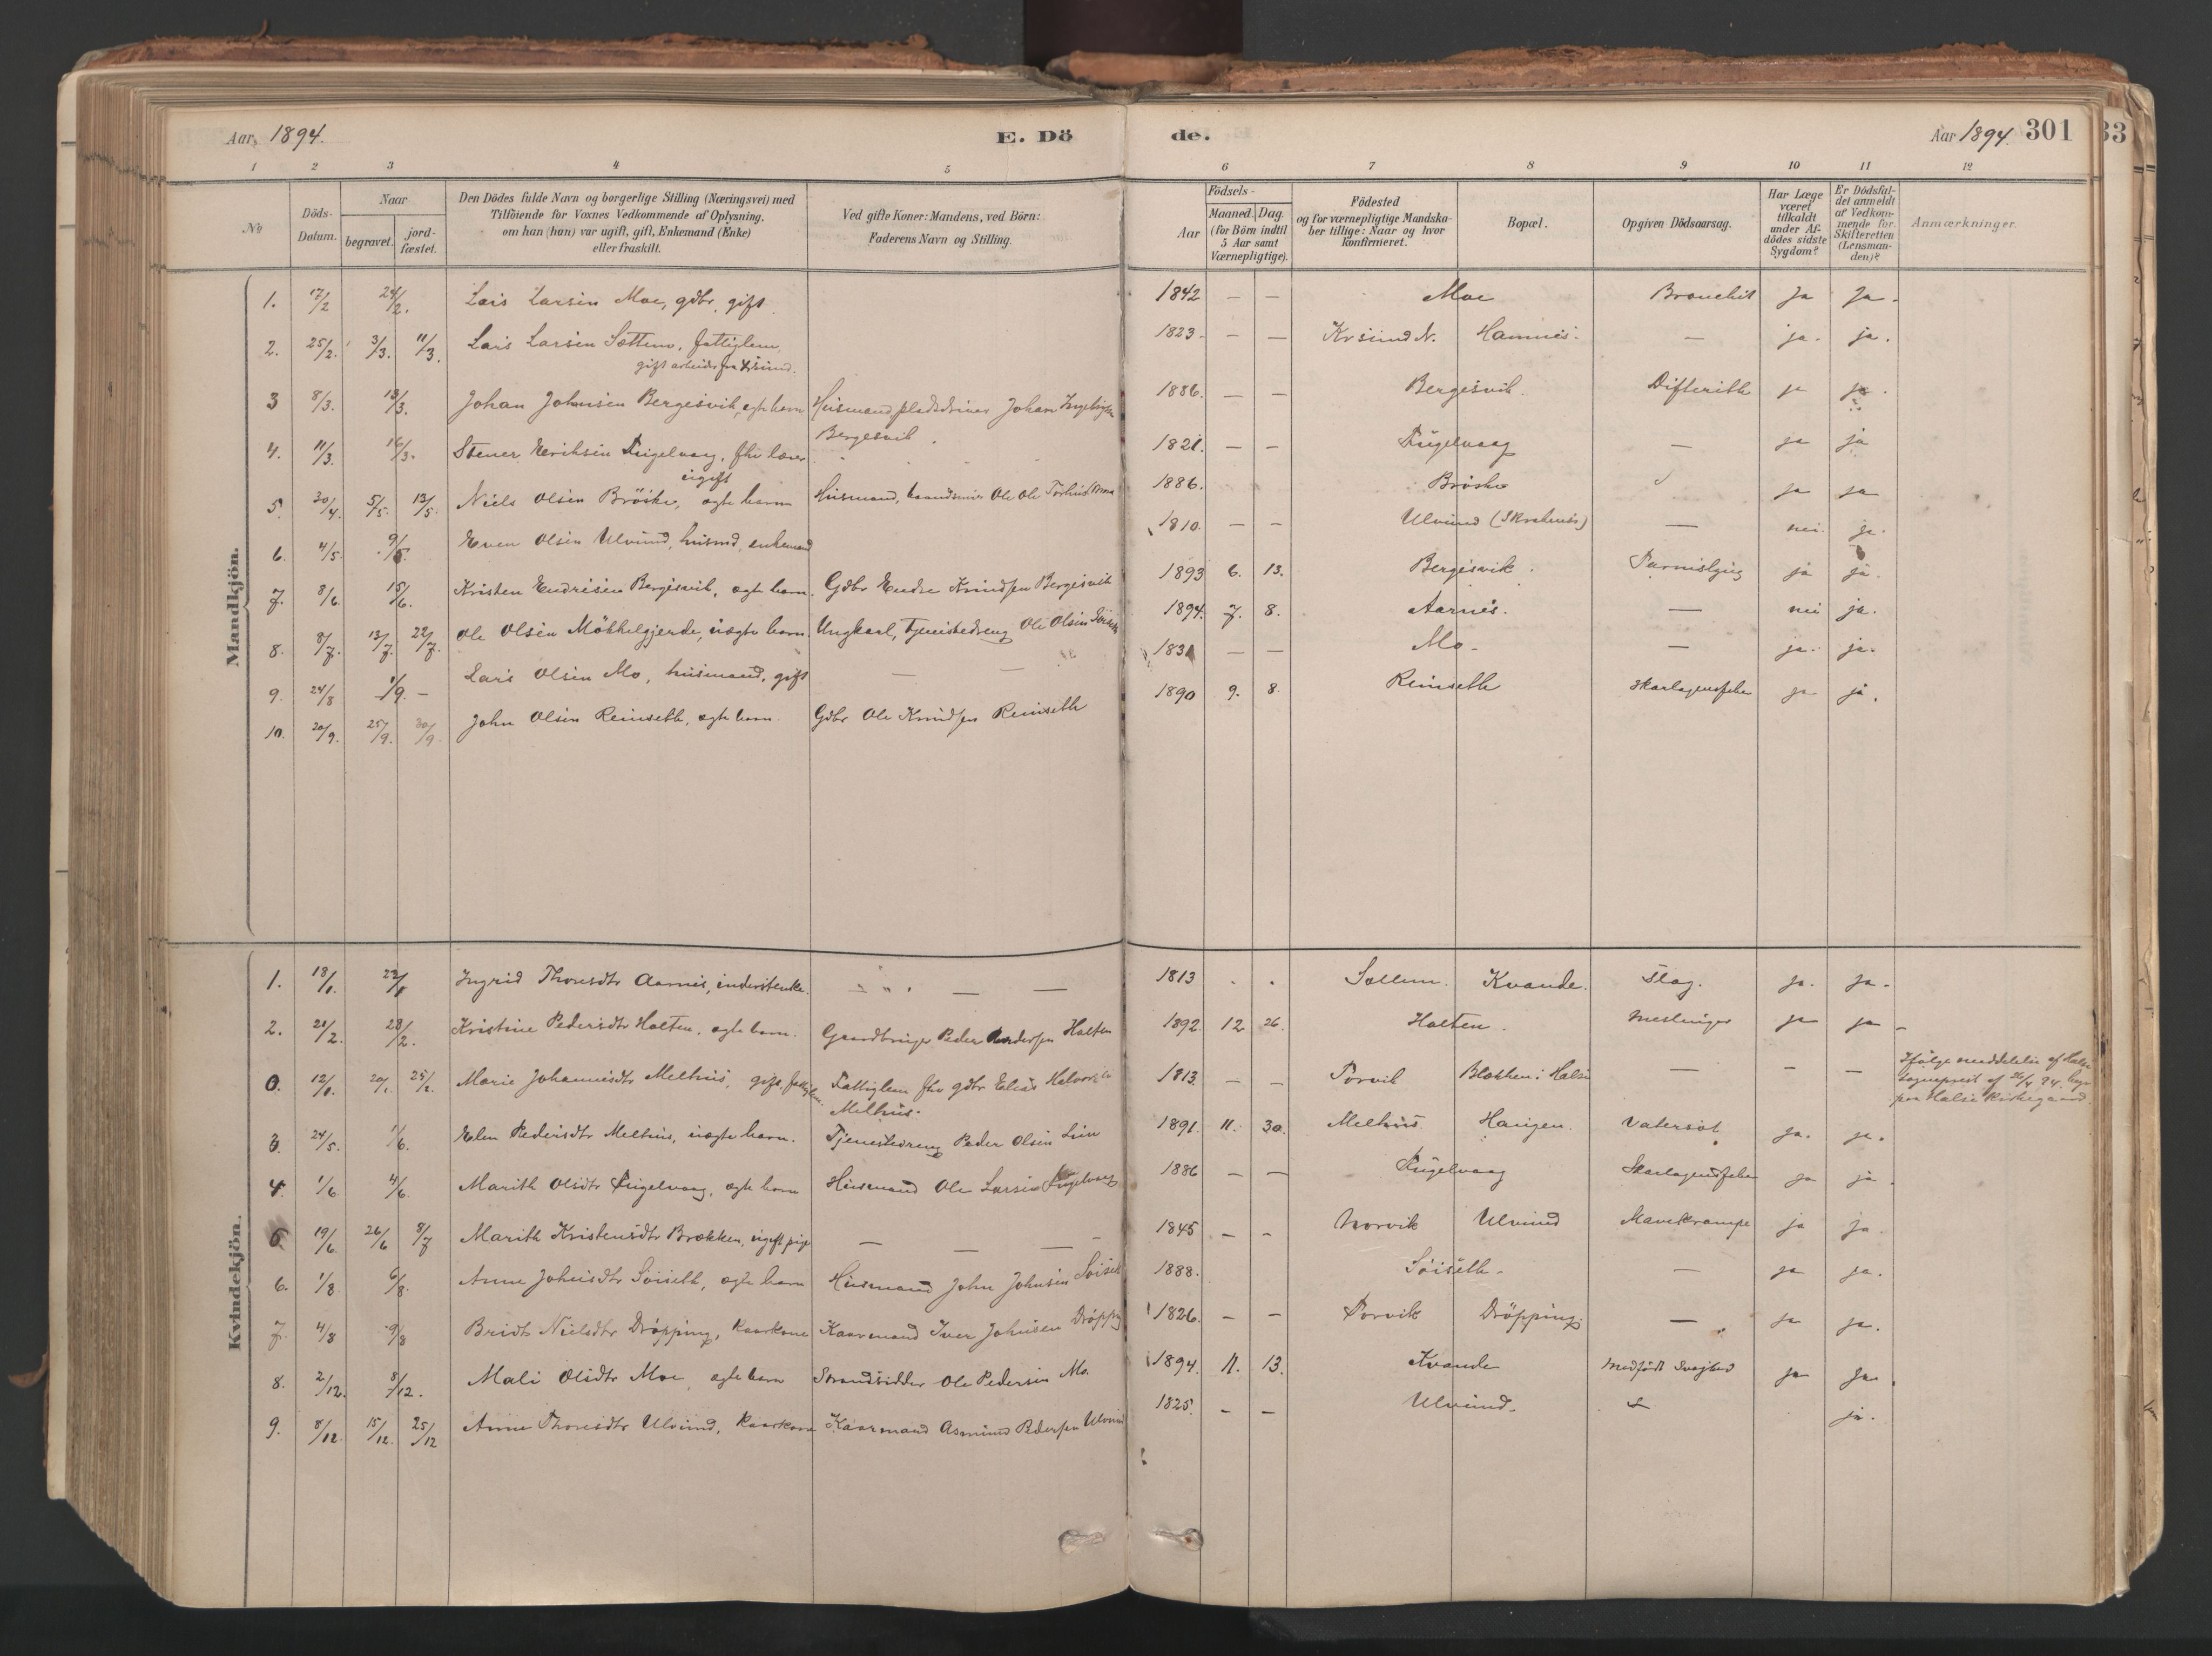 Aar 1894. E. Dö de. Aar 1894. 301
1 2 3 4 5 6 7 8 9 10 11 12
No
Döds-Datum.
Naar begravet. jordfæstet.
Den Dödes fulde Navn og borgerlige Stilling (Næringsvei) med
Tilföiende for Voxnes Vedkommende af Oplysning,
om han (hun) var ugift, gift, Enkemand (Enke)
eller fraskilt.
Ved gifte Koner: Mandens, ved Börn:
Faderens Navn og Stilling.
Födsels-
Aar
Maaned. Dag.
(for Börn indtil
5 Aar samt
Værnepligtige).
Födested
og for værnepligtige Mandska-
ber tillige: Naar og hvor
konfirmeret.
Bopæl.
Opgiven Dödsaarsag.
Har Læge
været
tilkaldt
under Af-
dödes sidste
Sygdom?
Er Dödsfal-
det anmeldt
af Vedkom-
mende for
Skifteretten
(Lensman-
den)?
Anmærkninger.
Mandkjön.
1. 17/2 24/2. Lars Larsen Moe, gdbr. gift 1842 — — Moe Bronchit Ja Ja.
2. 25/2. 3/3. 11/3. Lars Larsen Sættem, fattiglem, 1823 — — Krsund N. Hamnes. — ja. ja.
gift arbeider fra Krsund.
3 8/3. 13/3. Johan Johnsen Bergesvik, egte barn Husmand pladsbruger Johan Bergesvik 1886. — — Bergesvik. Difterith ja ja.
4. 11/3. 16/3. Stener Eriksen Fugelvaag, fhv lærer ugift 1821. — — Fugelvaag — ja ja
5. 30/4. 5/5. 13/5. Niels Olsen Bröske, ægte barn Husmand, Ole Ole 1886. Bröske ja ja
6. 4/5. 9/5. Even Olsen Ulvund, husmd, enkemand 1810. — — Ulvund (Skralenes) — nei ja.
7. 8/6. 15/6. Kristen Endresen Bergesvik, ægte barn. Gdbr Endre Knudsen Bergesvik 1893 6. 13. Bergesvik. ja ja.
8. 8/7. 13/7. 22/7. Ole Olsen Mökkelgjerde, uægte barn. Ungkarl, Tjenestedreng Ole Olsen 1894. 7. 8. Aarnes. — nei ja.
9. 24/8 1/9. — Lars Olsen Mo, husmand, gift — 1831 — — Mo. — ja. ja.
10. 20/9. 25/9. 30/9. John Olsen Reinseth, ægte barn. Gdbr Ole Knudsen Reinseth 1890 9. 8. Reinseth Skarlagensfeber ja ja.
Kvindekjön.
1. 18/1. 23/1 Ingrid Thoresdtr Aarnes, inderstenke. — — 1813 . . Sollum. Kvande. Slag. ja. ja.
2. 21/2. 28/2. Kristine Pedersdtr Holten, ægte barn. Gaardbruger Peder Pedersen Holten 1892 12 26. Holten. Meslinger ja ja
0. 12/1. 20/1 25/2. Marie Johannesdtr Melhus, gift, fattiglem. Fattiglem fhv gdbr Elias Halvorsen Melhus. 1813. — — Torvik Blekken i Halse — — — Ifölge meddelelse af Halse
sogneprest af 26/4 94. begr
paa Halse kirkegaard.
3. 24/5. 1/6. Elen Pedersdtr Melhus, uægte barn. Tjenestedreng Peder Olsen Lien 1891. 11. 30. Melhus. Haugen. Vatersot ja. ja.
4. 1/6. 4/6. Marith Olsdtr Fugelvaag, ægte barn Husmand Ole Larsen Fugelvaag 1886 — — Fugelvaag Skarlagensfeber ja ja.
5. 19/6. 26/6 8/7 Marith Kristensdtr Brækken, ugift pige — — — 1845 — — Norvik Ulvund Mavekrampe ja ja
6. 1/8 6/8. Anne Johnsdtr Söiseth, ægte barn Husmand John Johnsen Söiseth 1888. Söiseth. — ja ja.
7. 4/8 9/8 Bridt Nielsdtr Dröpping, kaarkone Kaarmand Iver Johnsen Dröpping 1826. — — Torvik Dröpping. — ja ja.
8. 2/12. 8/12. Mali Olsdtr Moe, ægte barn Strandsidder Ole Pedersen Mo. 1894. 11. 13. Kvande Medfödt Svaghed ja ja.
9. 8/12. 15/12. 25/12 Anne Thoresdtr Ulvund, kaarkone Kaarmand Asmund Pedersen Ulvund 1825. — — Ulvund. ja.